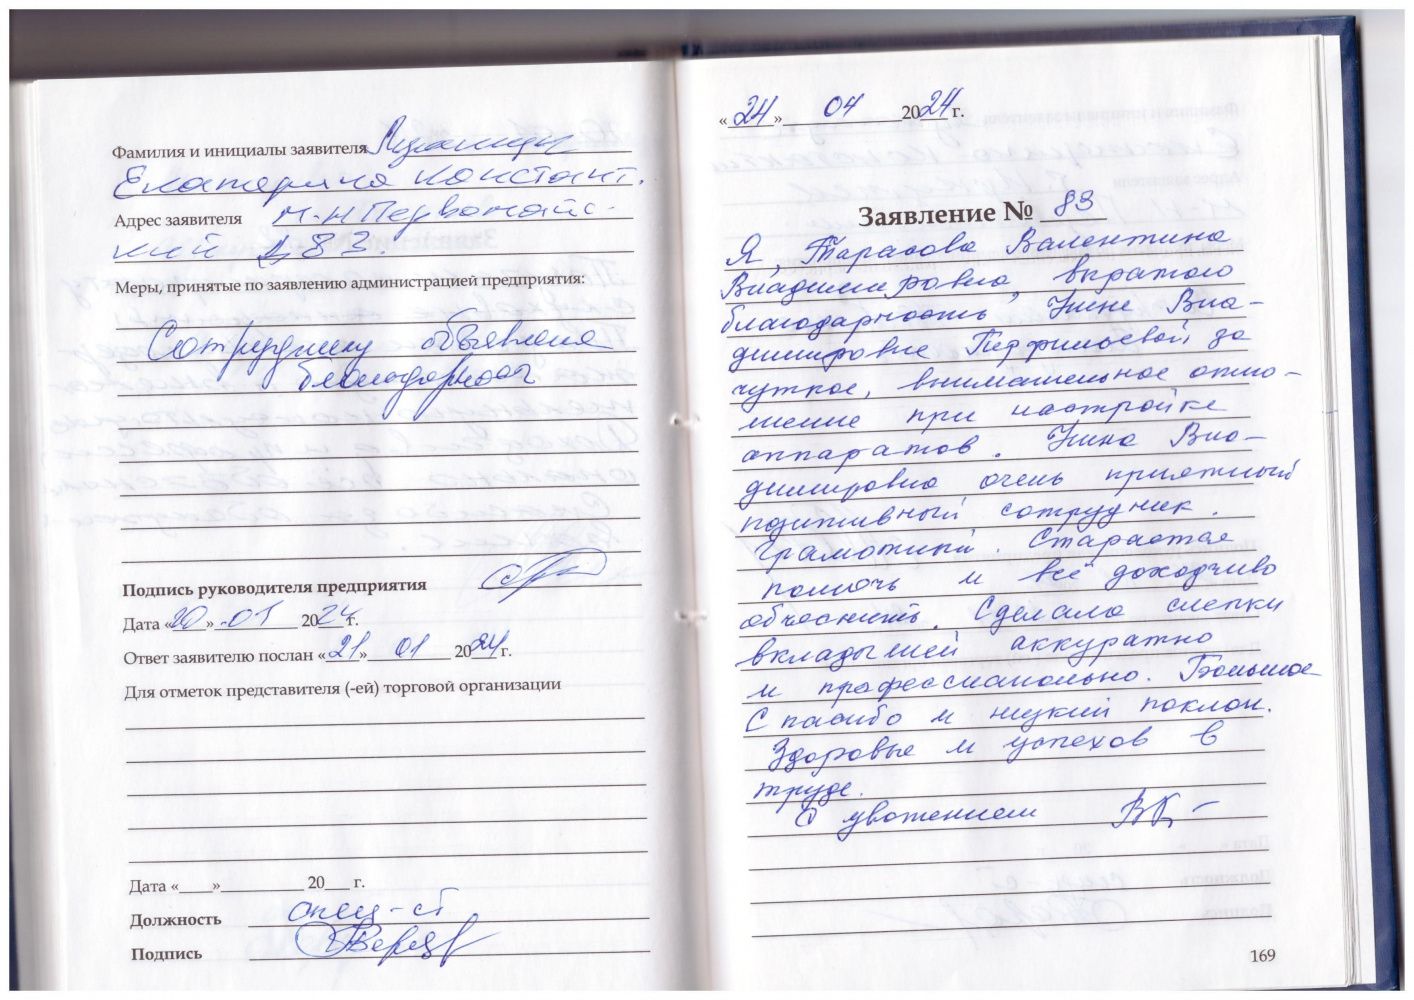 Фамилия и инициалы заявителя
Екатерина Констант.
Адрес заявителя м-н Первомайс-
кий д 83.
Меры, принятые по заявлению администрацией предприятия:
Сотруднику объявлена
благодарность
Подпись руководителя предприятия
Дата «20» 01 2024 г.
Ответ заявителю послан «21» 01 2024 г.
Для отметок представителя (-ей) торговой организации
Дата «____»____________ 20___ г.
Должность спец-ст
Подпись
«24» 04 2024 г.
Заявление № 83
Я, Тарасова Валентина
Владимировна, выражаю
благодарность Нине Вла-
димировне Перфильевой за
чуткое, внимательное отно-
шение при настройке
аппаратов. Нина Вла-
димировна очень приятный
позитивный сотрудник.
Грамотный. Старается
помочь и всё доходчиво
объяснить. Сделала слепки
вкладышей аккуратно
и профессионально. Большое
Спасибо и низкий поклон.
Здоровье и успехов в
труде.
С уважением
169